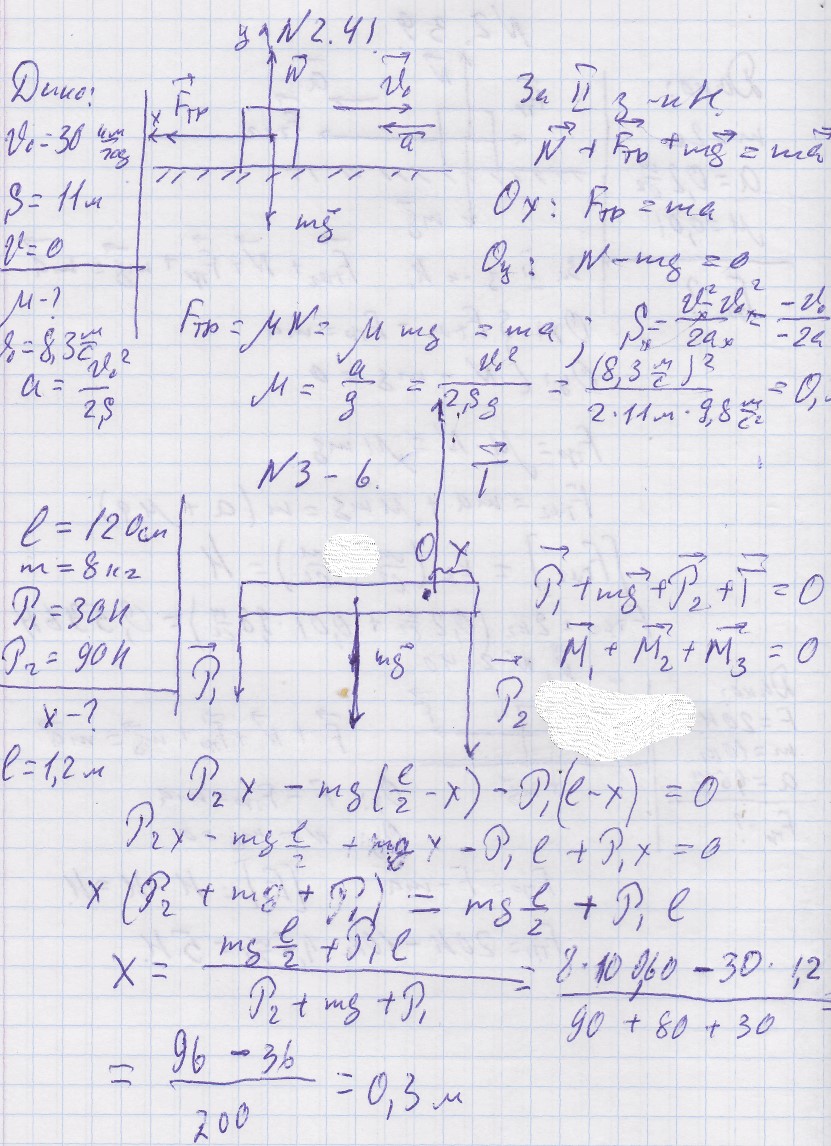 N 2.41.
Дано:
V₀ = 30 км/год
S = 11 м
V = 0
μ - ?
V₀ = 8,3 м/с
a = V₀²/2S
y
N
Fтр
x
V₀
a
mg
За II з-н Н.
N + Fтр + mg = ma
Ox: Fтр = ma
Oy: N - mg = 0
Fтр = μN = μmg = ma ; Sₓ = (Vₓ² - V₀ₓ²)/2aₓ = -V₀/-2a
μ = a/g = V₀²/2Sg = (8,3 м/с)²/(2·11м·9,8 м/с²) = 0,
N 3 - 6.
l = 120 см
m = 8 кг
P₁ = 30 Н
P₂ = 90 Н
x - ?
l = 1,2 м
T
O
x
P₁
mg
P₂
P₁ + mg + P₂ + T = 0
M₁ + M₂ + M₃ = 0
P₂x - mg(l/2 - x) - P₁(l - x) = 0
P₂x - mg l/2 + mg x - P₁l + P₁x = 0
x(P₂ + mg + P₁) = mg l/2 + P₁l
x = (mg l/2 + P₁l)/(P₂ + mg + P₁) = (8·10·0,60 - 30·1,2)/(90 + 80 + 30) =
= (96 - 36)/200 = 0,3 м